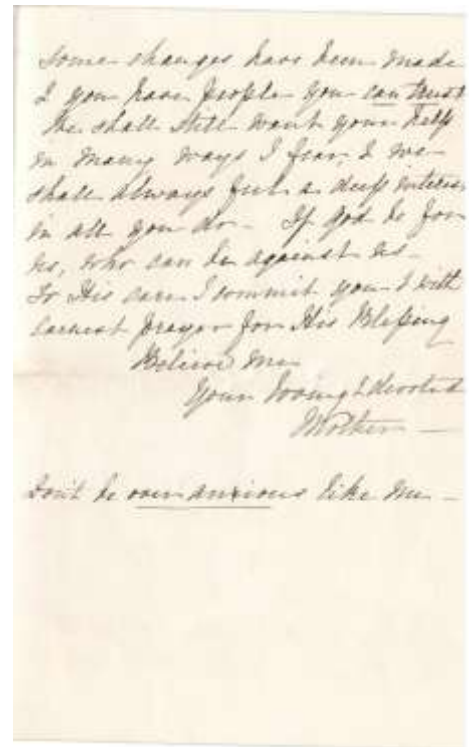 some changes have been made
& you have people you can trust
We shall still want your help
in many ways I fear, & we
shall always feel a deep interest
in all you do - If God be for
us, who can be against us -
To His care I commit you & with
earnest prayer for His Blessing
Believe me
Your loving & devoted
Mother -
Don't be over anxious like me -